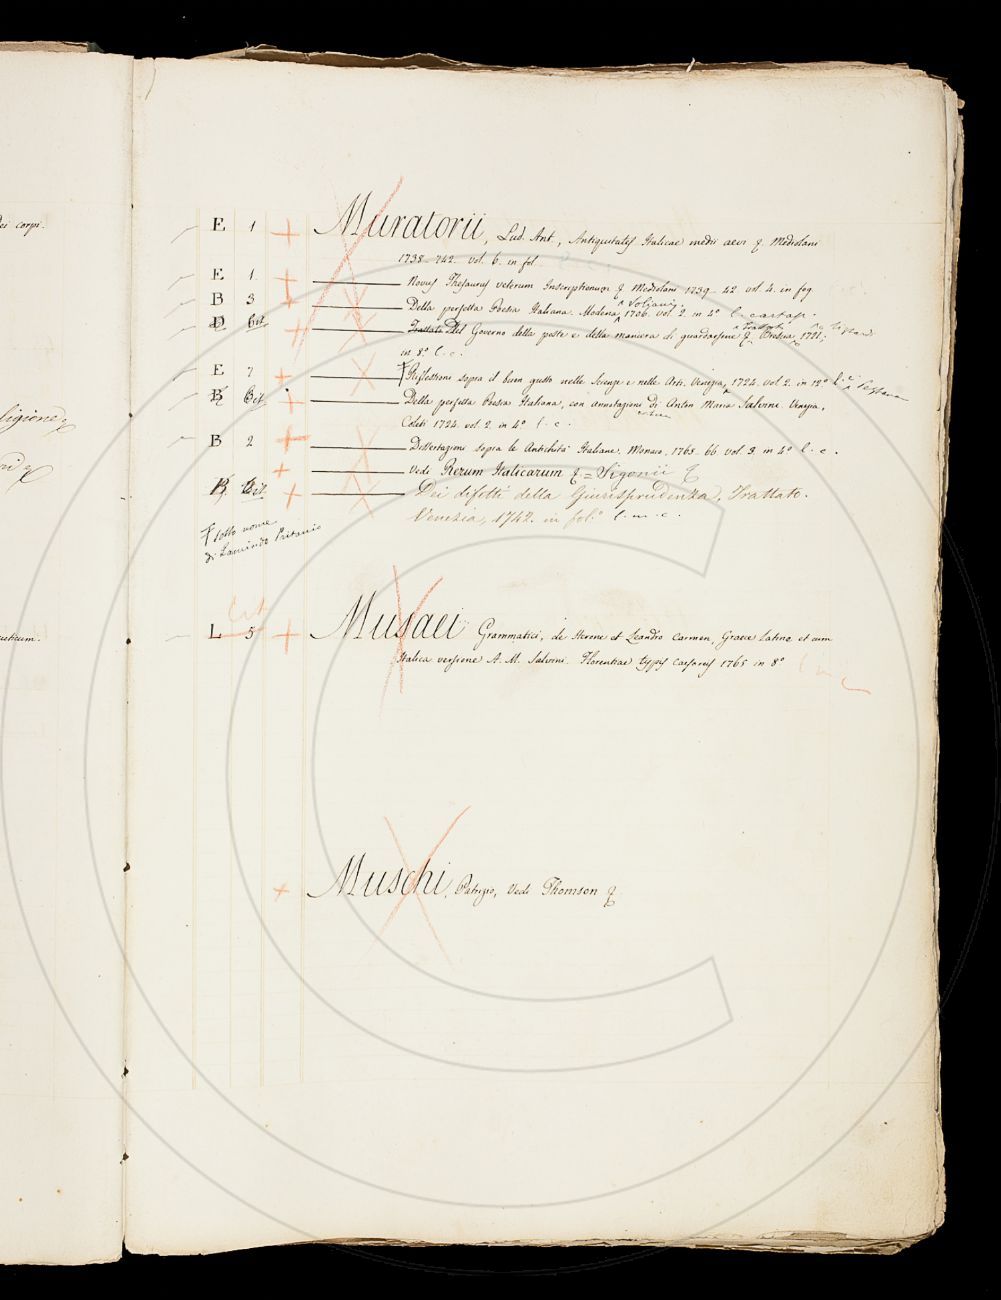 ei corpi.
E 1 Muratorii, Lud. Ant., Antiquitates Italicae medii aevi & Mediolani
1738-742. vol. 6. in fol.
E 1. Novus Thesaurus veterum Inscriptionum & Mediolani 1739-42. vol. 4. in fog.
B 3 Della perfetta Poesia Italiana. Modena ^ Soliani. 1706. vol. 2. in 4°
D Trattato Del Governo della peste e della maniera di guardarsene & ^ Brescia 1721;
in 8° l. c.
E 7 Riflessioni sopra il buon gusto nelle Scienze e nelle Arti. Venezia, 1724. vol 2. in 12°
B Della perfetta Poesia Italiana, con annotazioni di Anton Maria Salvini. Venezia,
Coleti 1724. vol. 2. in 4° l. c.
B 2 Dissertazioni sopra le Antichità Italiane. Monaco, 1765-66 vol. 3. in 4° l. c.
Vedi Rerum Italicarum & = Sigonii &
B Dei difetti della Giurisprudenza, Trattato.
Venezia, 1742. in fol.° l. m. c.
sotto nome
di Lamindo Pritanio
ligione
L 5 Musaei Grammatici, de Herone et Leandro Carmen, Graece Latine et cum
Italica versione A. M. Salvini. Florentiae typis Caesareis 1765 in 8°
usticum.
Muschi, Patrizio, Vedi Thomson &